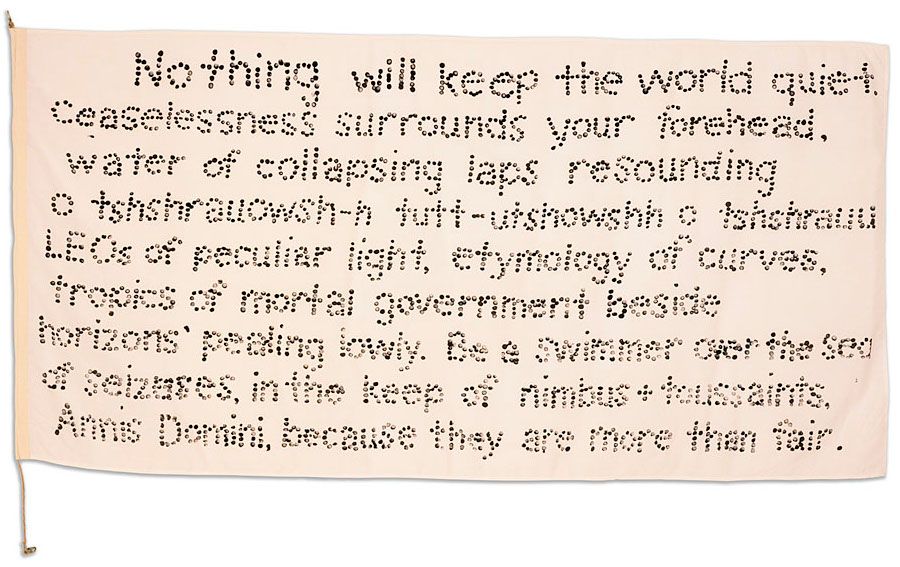 Nothing will keep the world quiet.
Ceaselessness surrounds your forehead,
water of collapsing laps resounding
o tshshrauowsh-h tutt-utshowshh o tshshrauu
LEOs of peculiar light, etymology of curves,
tropics of mortal government beside
horizons' pealing lowly. Be a swimmer over the sea
of seizures, in the keep of nimbus + toussaints,
Annis Domini, because they are more than fair.